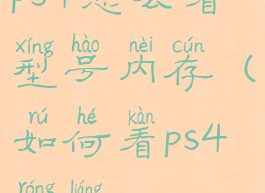 ps4怎么看
xíng hào nèi cún
型号内存（
rú hé kàn
如何看ps4
róng liàng